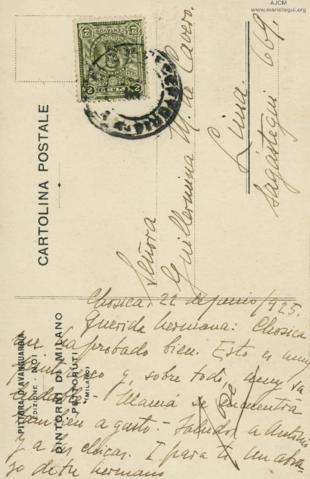 AJCM
www.mariategui.org
CARTOLINA POSTALE
Señora
Guillermina M. de Cavero.
Lima.
Sagástegui 669.
PITTURA D'AVANGUARDIA
EDIZIONE - DIDI
DINTORNI DI MILANO
PETTORUTI
MILANO
Chosica, 22 de junio/925.
Querida hermana: Chosica
me ha probado bien. Esto es muy
y, sobre todo, muy
Mamá se encuentra
también a gusto. Saludos a Antonio
y a los chicos. I para ti un abra-
zo de tu hermano
José